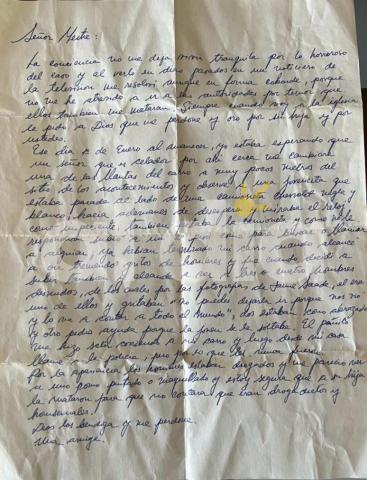 Señor Mestre:
La conciencia no me deja vivir tranquila por lo horroroso
del caso y al verlo en días pasados en un noticiero de
la television me resolví aunque en forma cobarde, porque
no me he atrevido a ir a las autoridades por temor que
ellos tambien me mataran. Siempre cuando voy a la iglesia
le pido a Dios que me perdone y oro por su hija y por
ustedes.
Ese dia 1 de Enero al amanecer, yo estaba esperando que
un señor que es celador por allí cerca me cambiara
una de las llantas del carro a muy pocos metros del
sitio de los acontecimientos y observé a una jovencita que
estaba parada al lado de una camioneta chevrolet negra y
blanco, hacia ademanes de desespero y miraba el reloj
como impaciente, tambien la camioneta y como no le
respondian subió a un como para buscar o llamar
a alguien, ya habian terminado mi carro cuando alcance
a oir tremendos gritos de hombres y fue cuando decidi a
subir tambien y alcance a ver a tres o cuatro hombres
desnudos, de los cuales por las fotografias de Jaime Saade, el era
uno de ellos y gritaban "no puedes dejarla ir porque nos
y lo va a contar a todo el mundo", dos estaban como abrazados
y otro pedia ayuda porque la joven se le soltaba. El panico
me hizo salir corriendo a mi carro y luego desde mi casa
llamé a la policia, pero por lo que leí nunca fueron.
Por la apariencia los hombres estaban drogados y me parecio ver
a uno como pintado o maquillado y estoy segura que a su hija
la mataron para que no contara que eran drogadictos y
homosexuales!
Dios los bendiga y me perdone
Una amiga.